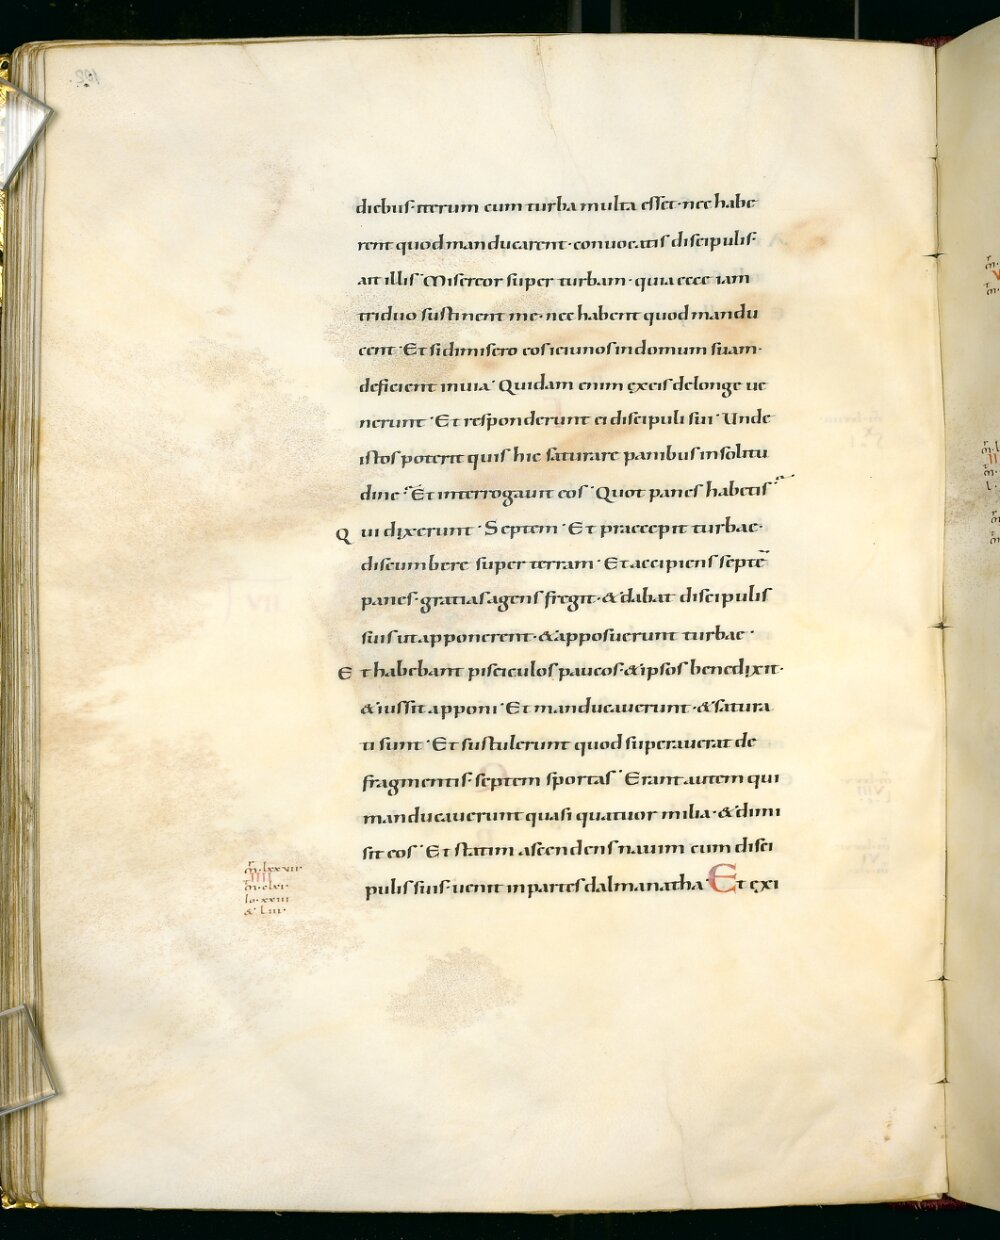 diebus· iterum cum turba multa esset· nec habe
rent quod manducarent· convocatis discipulis·
ait illis· Misereor super turbam· quia ecce iam
triduo sustinent me· nec habent quod mandu
cent· Et si dimisero eos ieiunos in domum suam·
deficient in uia· Quidam enim ex eis de longe ue
nerunt· Et responderunt ei discipuli sui· Unde
istos poterit quis hic saturare panibus in solitu
dine· Et interrogauit eos· Quot panes habetis
Qui dixerunt· Septem· Et praecepit turbae·
discumbere super terram· Et accipiens septē
panes· gratias agens fregit· & dabat discipulis
suis ut apponerent· & apposuerunt turbae·
Et habebant pisciculos paucos· & ipsos benedixit·
& iussit apponi· Et manducauerunt· & satura
ti sunt· Et sustulerunt quod superauerat de
fragmentis· septem sportas· Erant autem qui
manducauerunt quasi quatuor milia· & dimi
sit eos· Et statim ascendens nauim cum disci
pulis suis· uenit in partes dalmanatha· Et exi
m̄· lxxvii
IIII
m̄· clxi
lo· xxiii
& Liii·